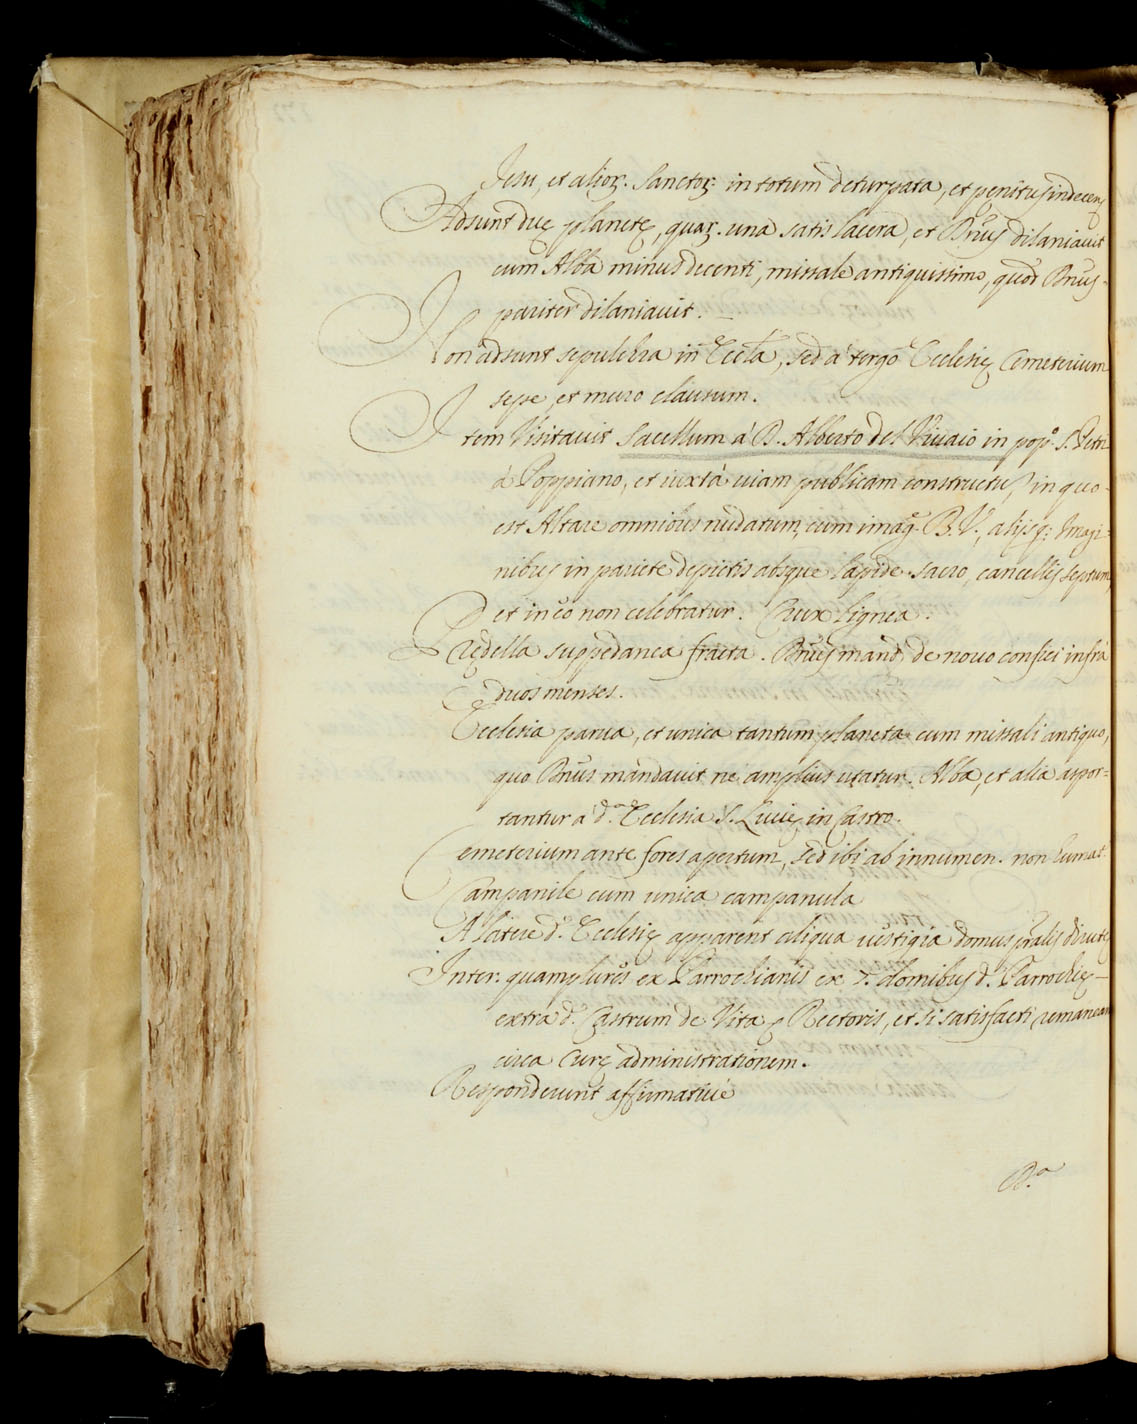 Jesu, et alior. Sanctor. in totum deturpata, et penitus indecens
Adsunt duę planetę, quar. una satis lacera, et Bmus dilaniauit
cum Alba minus decenti, missale antiquissimo, quod Bmus
pariter dilaniauit.
Non adsunt sepulchra in Eccla, sed à tergo Ecclesię Cemeterium
sepe, et muro clausum.
Item Visitauit Sacellum à D. Alberto del Viuaio in pop.o S. Petri
à Poppiano, et iuxtà uiam publicam constructu, in quo
est Altare omnibus nudatum, cum imag. B. V., alijsq; Imagi-
nibus in pariete depictis absque lapide sacro, cancellis septum,
et in eo non celebratur. Crux lignea.
Predella suppedanea fracta. Bmus mand. de nouo confici infra
duos menses.
Ecclesia parua, et unica tantum planeta cum missali antiquo,
quo Bmus mandauit ne amplius utatur. Alba, et alia aspor-
tantur a d.a Ecclesia S. Lucię in Castro.
Cemeterium ante fores apertum, sed ibi ab innumen. non humat.
Campanile cum unica campanula
A latere d. Ecclesię apparent aliqua uestigia domus prālis dirutę
Inter. quamplures ex Parrochianis ex domibus d. Parrochię
extra d. Castrum de Vita Rectoris, et si satisfacti remaneant
circa Curę administrationem.
Responderunt affirmatiuè
D.a